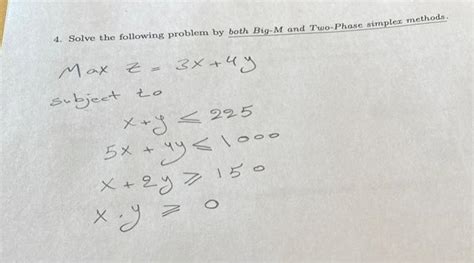 4. Solve the following problem by both Big-M and Two-Phase simplex methods.
Max z = 3x+4y
subject to
x+y ≤ 225
5x + 4y ≤ 1000
x + 2y ≥ 150
x . y ≥ 0